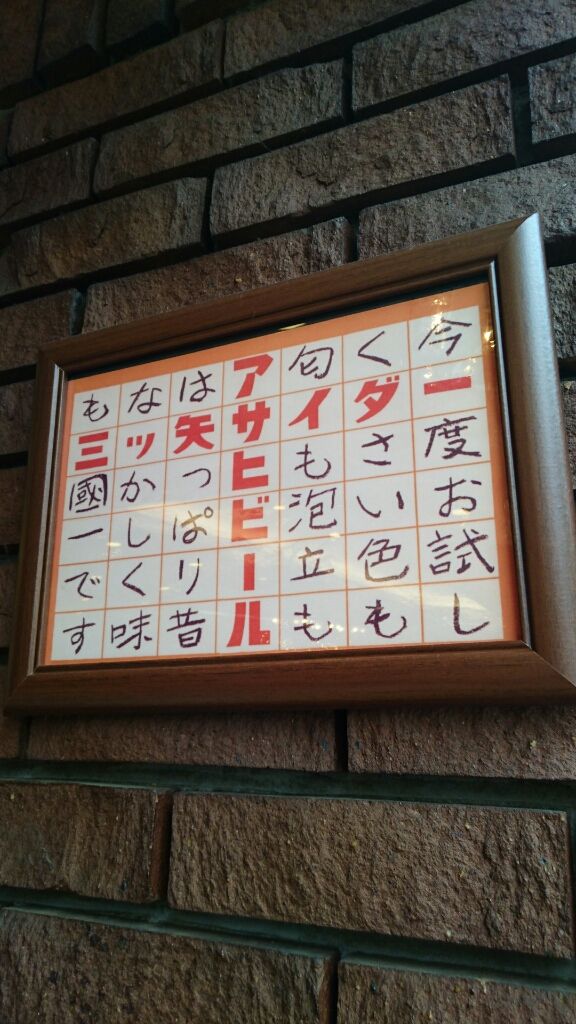 今一度お試し
くダさい色も
匂イも泡立も
アサヒビール
は矢っぱり昔
なッかしく味
も三國一です